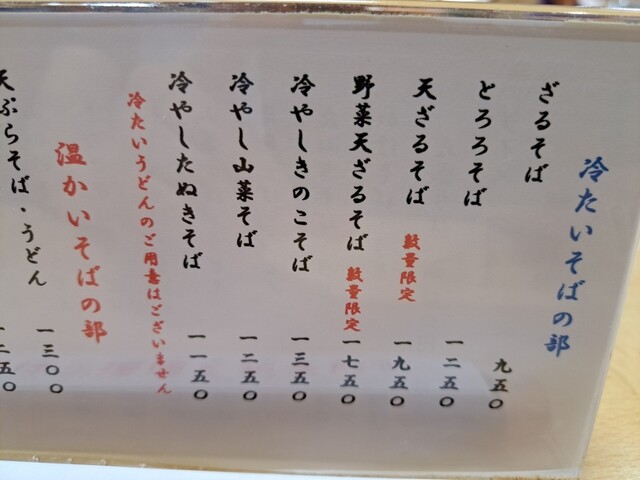 冷たいそばの部
ざるそば 九五〇
とろろそば 一二五〇
天ざるそば 数量限定 一九五〇
野菜天ざるそば 数量限定 一七五〇
冷やしきのこそば 一三五〇
冷やし山菜そば 一二五〇
冷やしたぬきそば 一一五〇
冷たいうどんのご用意はございません
温かいそばの部
天ぷらそば・うどん 一三〇〇
一二五〇